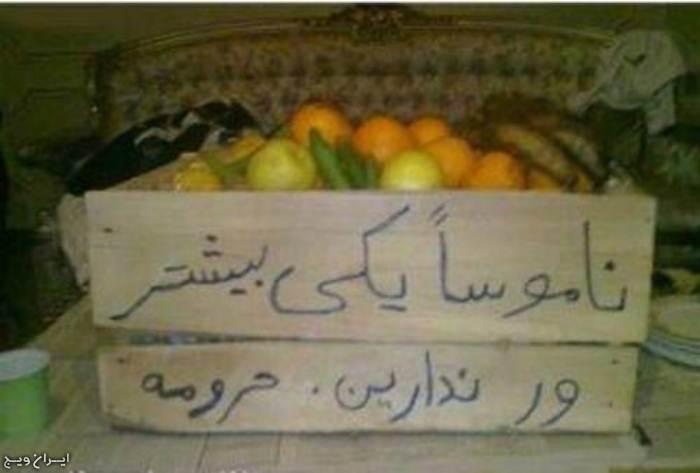 ناموساً یکی بیشتر
ور ندارین. حرومه
ایران ویج